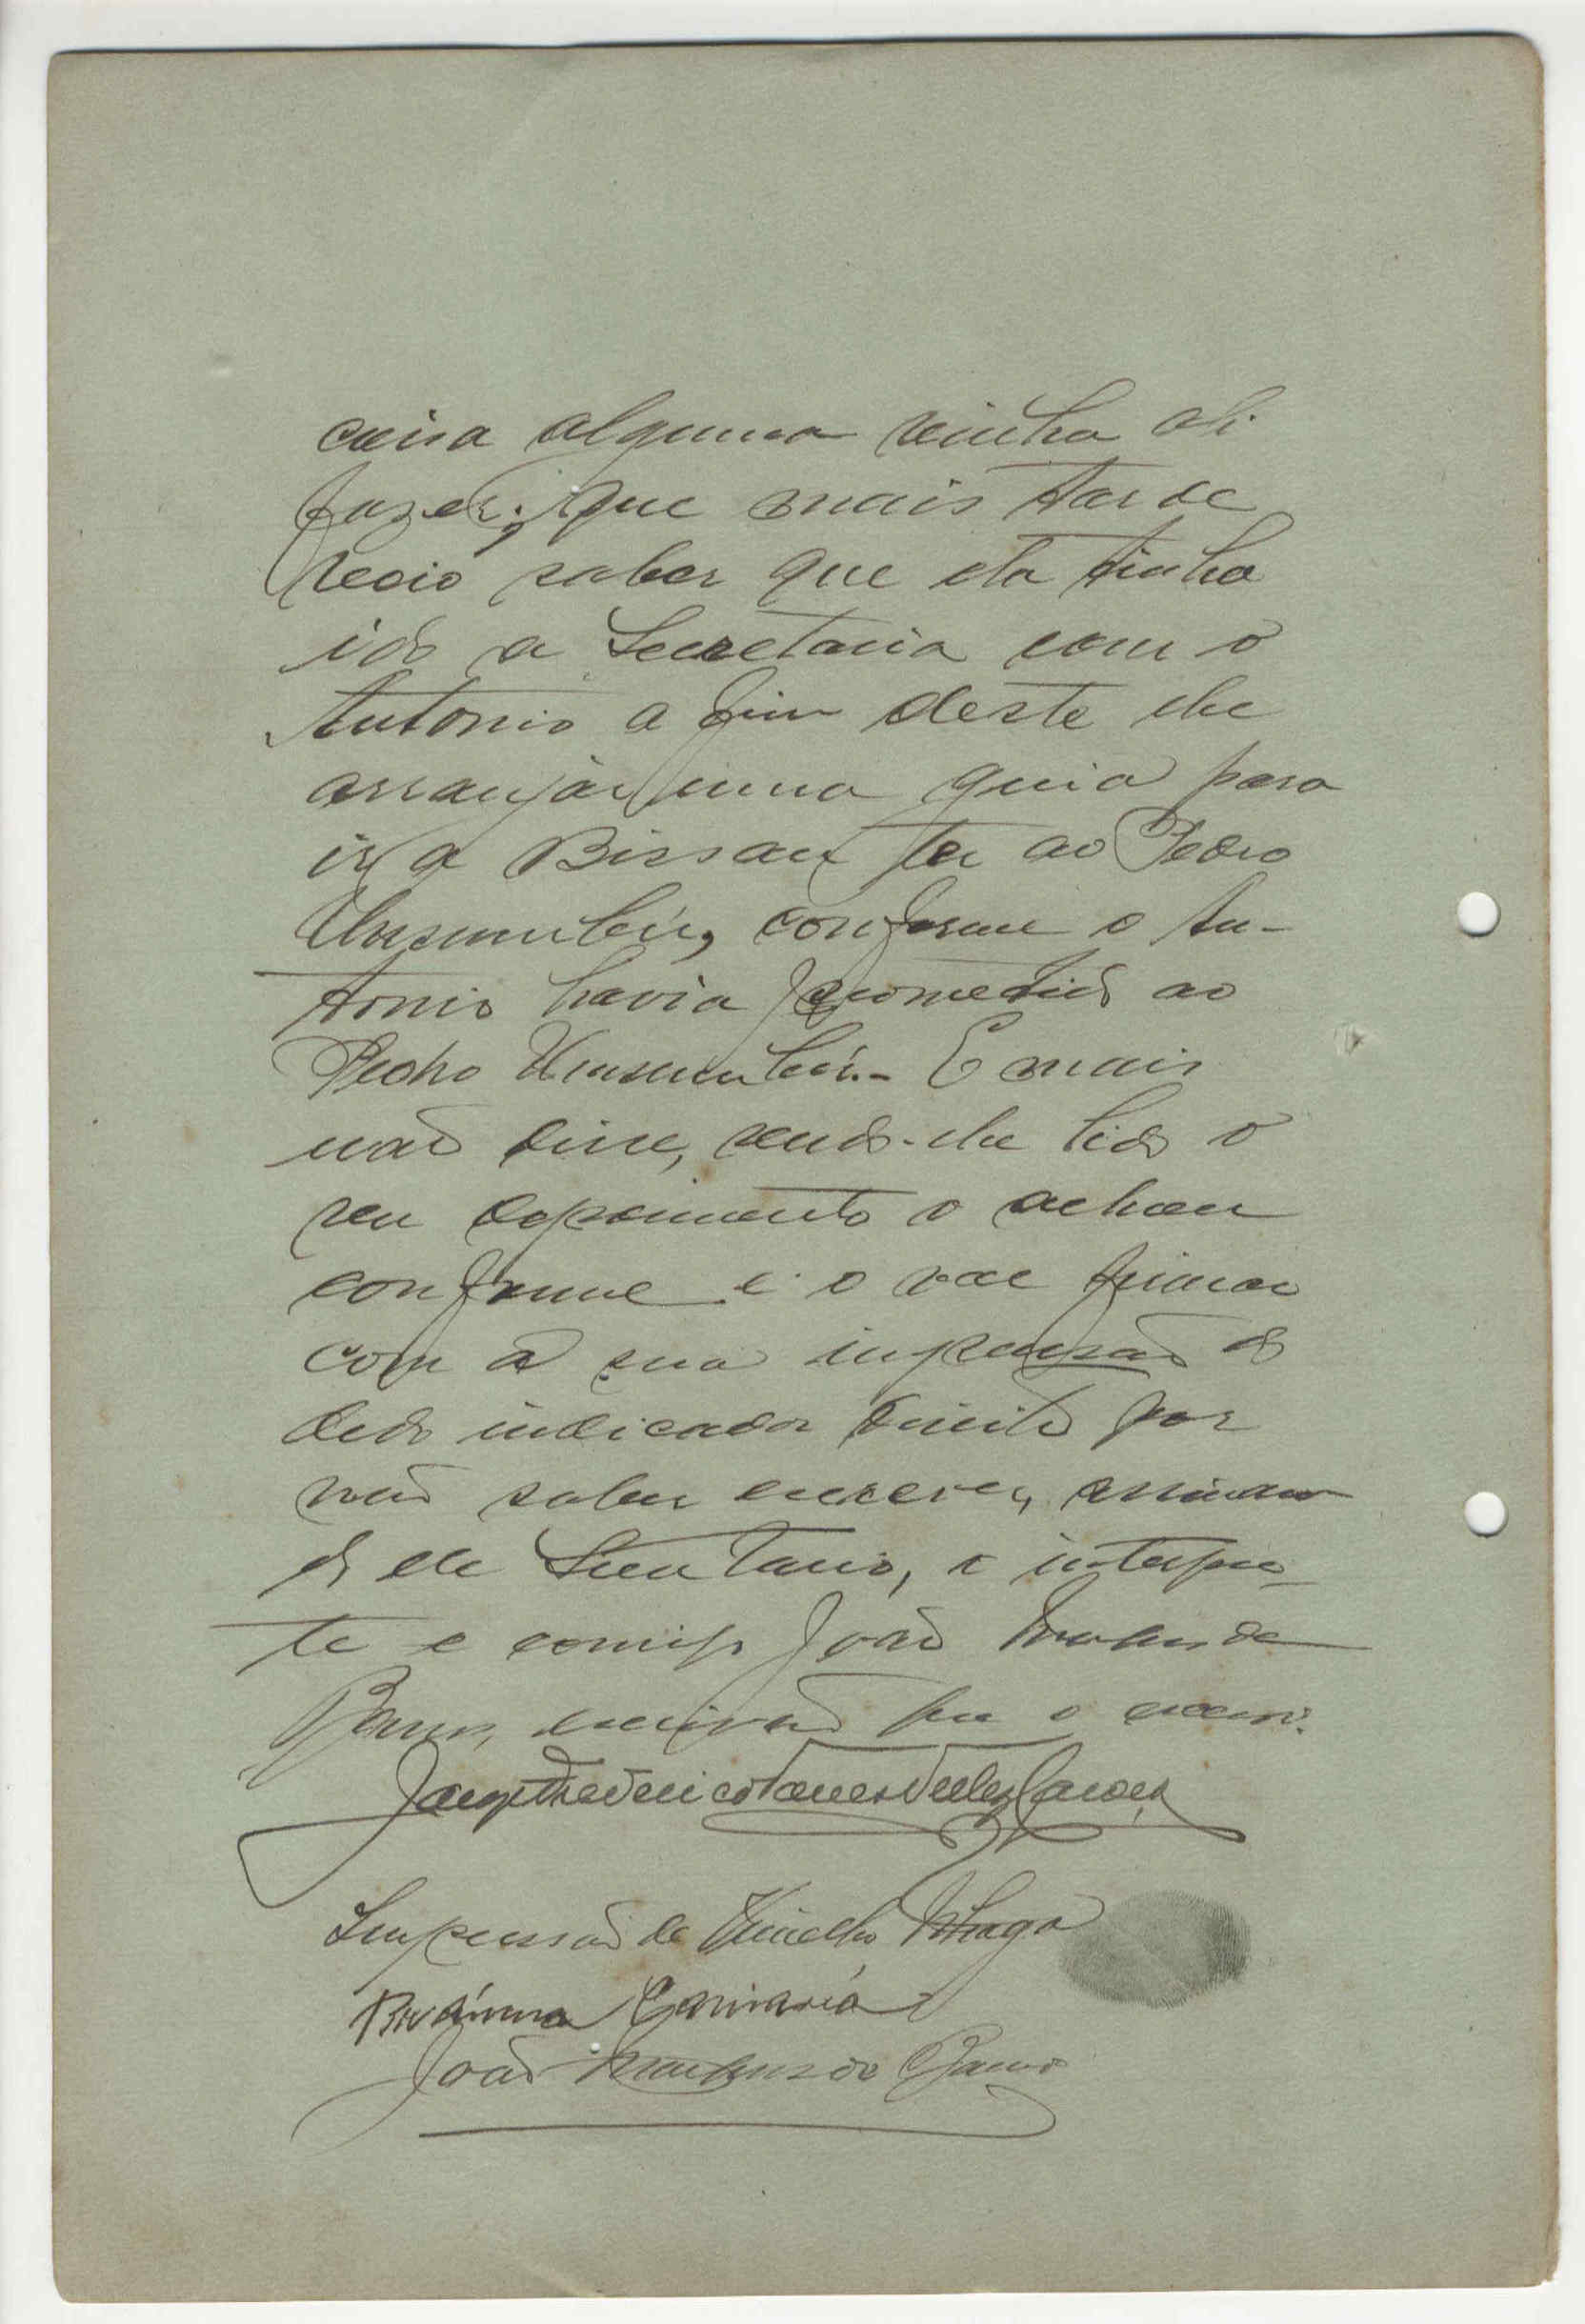 coisa alguma vinha ali
fazer; que mais tarde
veio saber que ela tinha
ido a Secretaria com o
Antonio a fim deste lhe
arranjar uma guia para
ir a Bissau ter ao Pedro
conforme o An-
tonio havia prometido ao
Pedro E mais
não disse, sendo-lhe lido o
seu depoimento o achou
conforme e o vae firmar
com a sua impressão do
dedo indicador direito por
não saber escrever, assinan
do ele Secretario, o interpre-
te e comigo João
escrivão que o escrevi.
Jorge Frederico Torres Velez Caroço
Impressão de
João